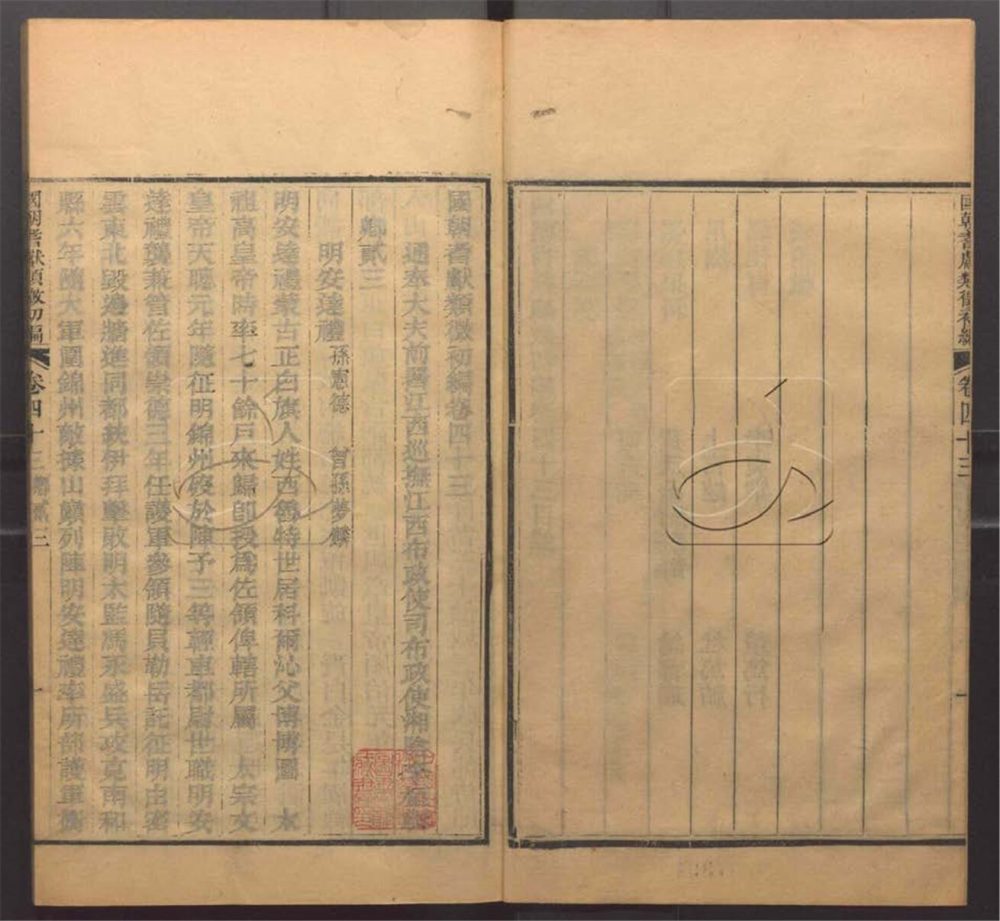 國朝耆獻類徵初編卷四十三
卷四十三
一
國朝耆獻類徵初編卷四十三
通奉大夫前署江西巡撫江西布政使司布政使湘陰李
卿貳三
明安達禮 孫憲德 曾孫夢麟
明安達禮蒙古正白旗人姓西魯特世居科爾沁父博博圖 太
祖高皇帝時率七十餘戶來歸卽授爲佐領俾轄所屬 太宗文
皇帝天聰元年隨征明錦州歿於陣予三等輕車都尉世職明安
達禮襲兼管佐領崇德三年任護軍參領隨貝勒岳託征明由密
雲東北毀邊牆進同都統伊拜擊敗明太監馮永盛兵攻克南和
縣六年隨大軍圍錦州敵據山巔列陣明安達禮率所部護軍
國朝耆獻類徵初編 卷四十三 卿貳三 一